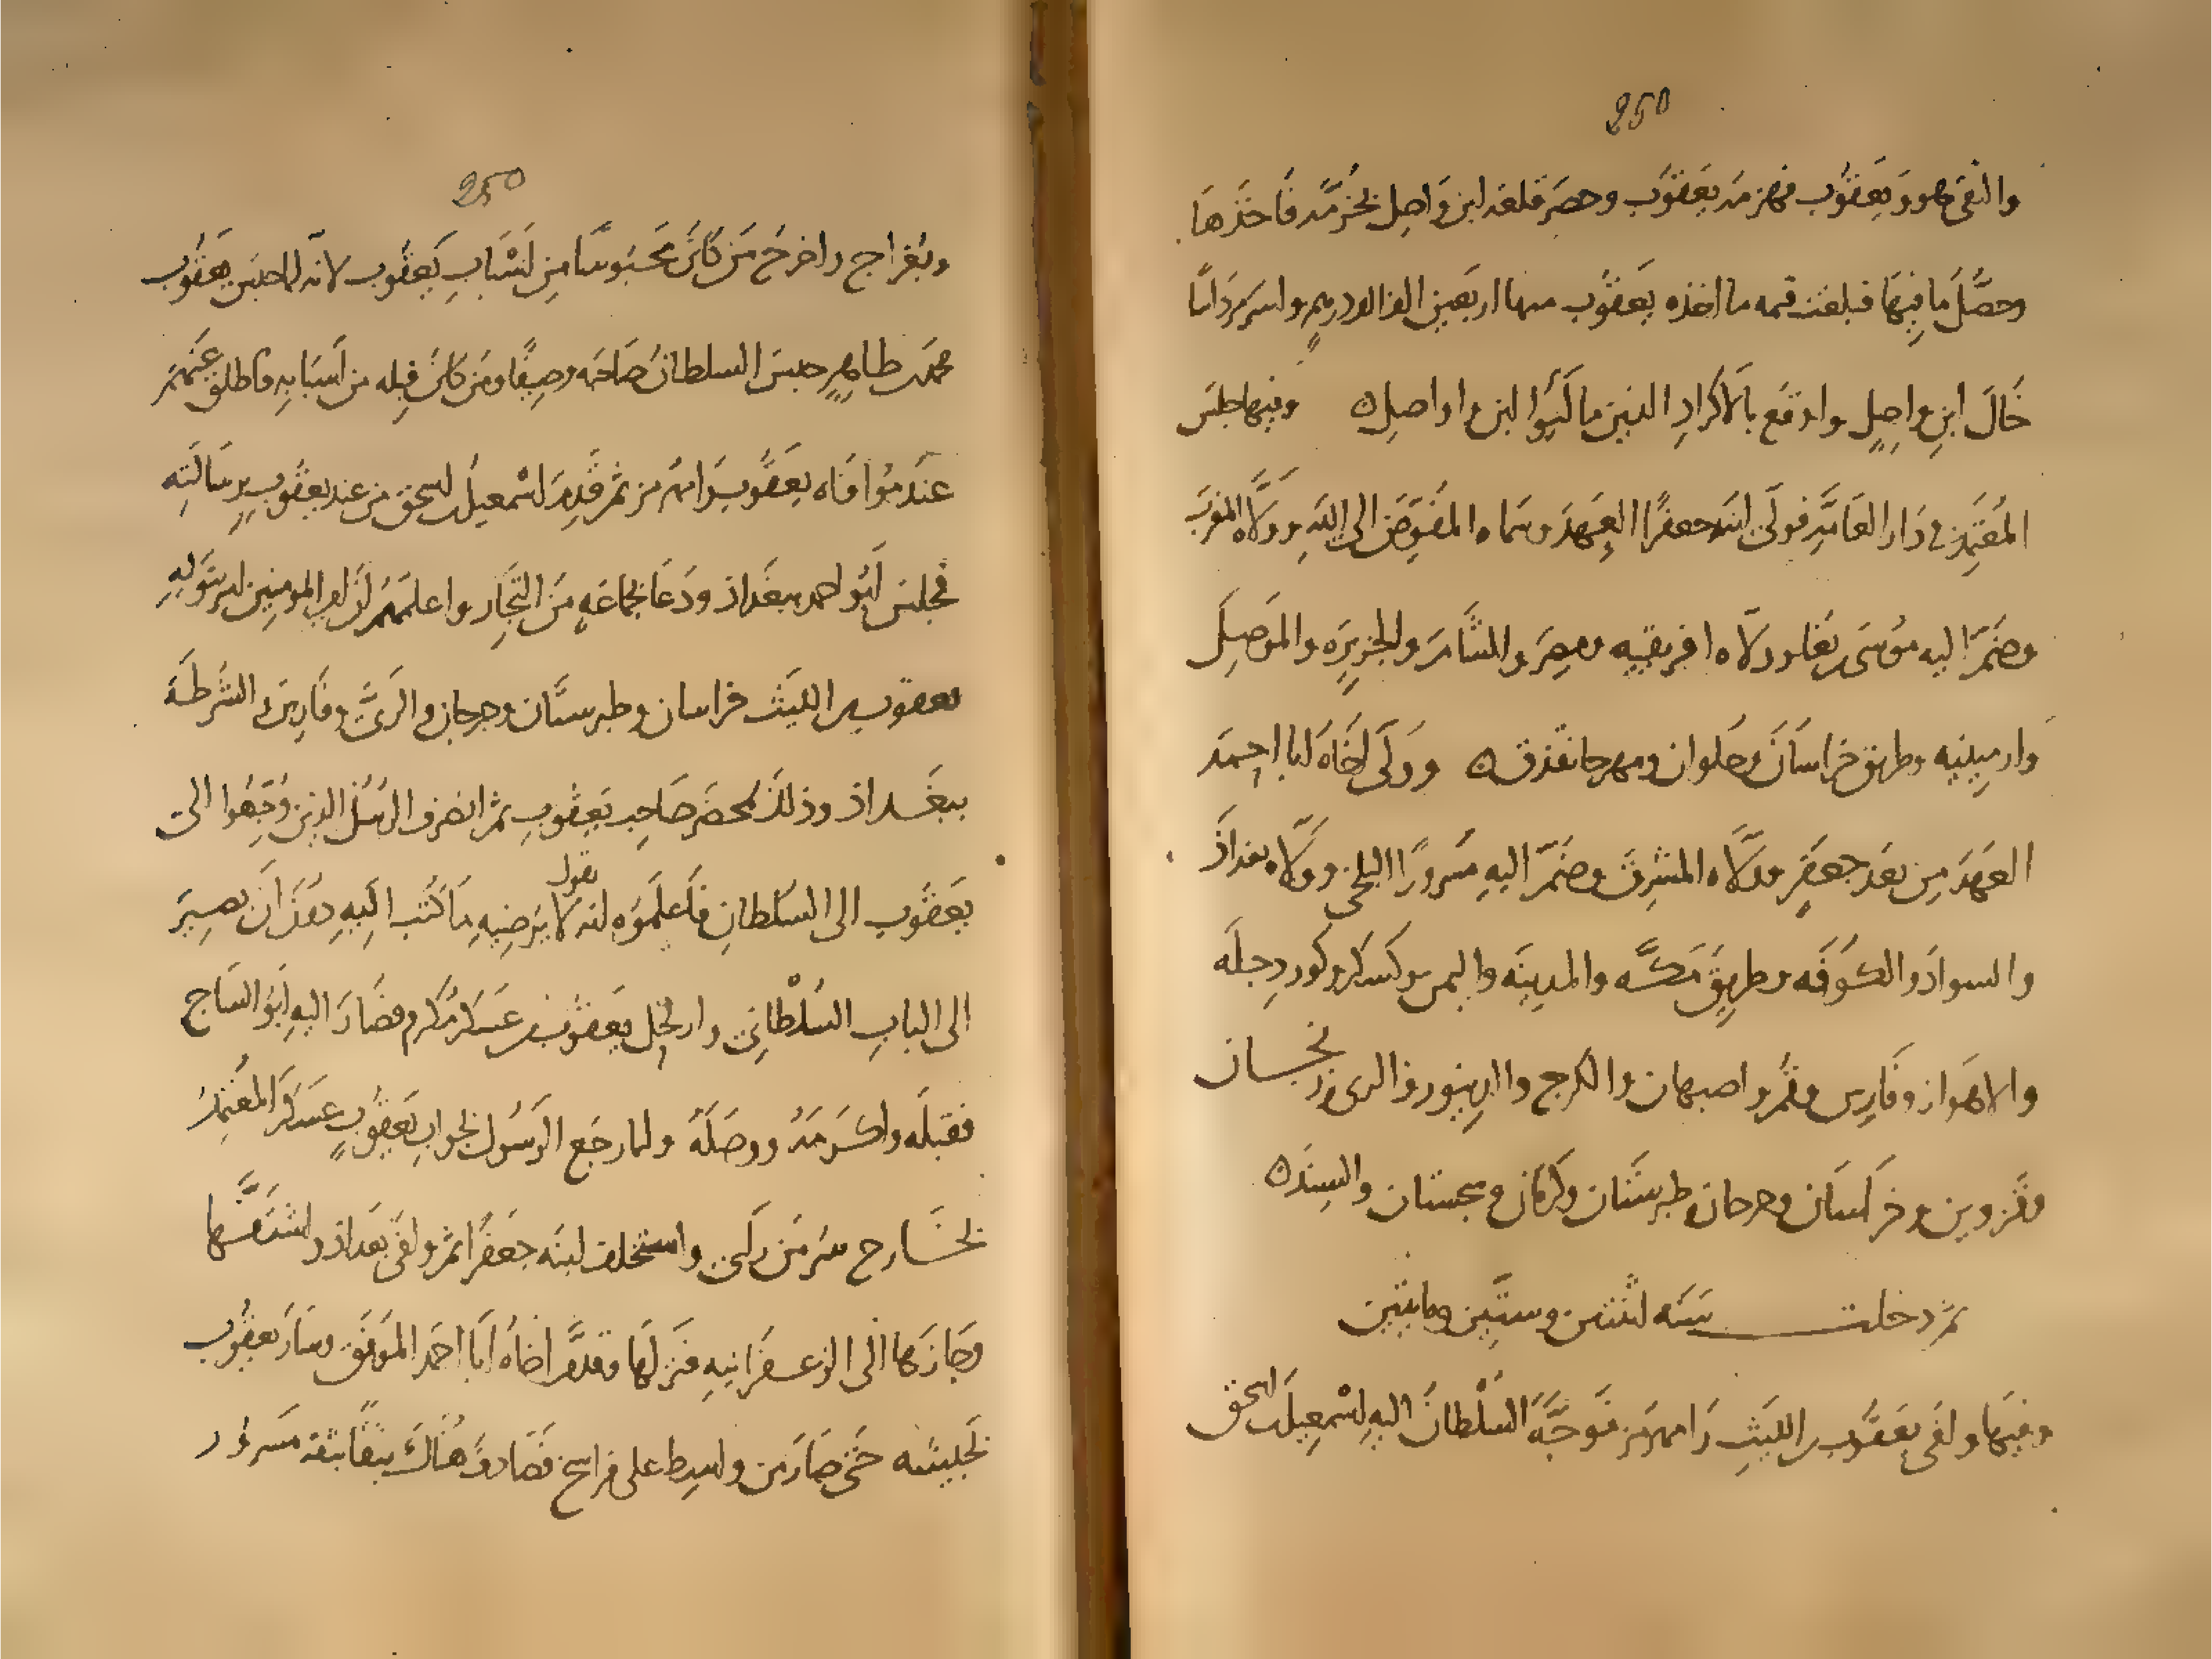 250
والتقى هو ويعقوب فهزمه يعقوب وحصر قلعه ابن واصل بخُرّمَه فاخذها
وحصّل ما فيها فبلغت قيمه ما اخذه يعقوب منها اربعين الف الف درهم واسر مرداسا
خالَ ابنِ واصلٍ واوقع بالاكرادِ الذين مالئوا ابن واصل ه وفيها جلس
المُعتمِد في دار العامّهِ فولّى ابنه جعفرًا العهد وسماه المفوّض الى اللهِ وولّاه المغربَ
وضمّ اليه موسى بن بغا وولّاه افريقيه ومصر والشام والجزيره والموصل
وارمينيه وطريق خراسانَ وحلوان ومهرجانقذق ه وولّى اخاهُ ابا احمد
العهدَ من بعد جعفرٍ وولّاه المشرق وضمّ اليهِ مسرورًا البلخى وولّاه بغداذَ
والسوادَ والكوفه وطريقَ مكّه والمدينه واليمن وكسكر وكور دِجلَه
والاهواز وفارِس وقُمّ واصبهان والكرج والدينور والرى وزنجان
وقزوين وخراسان وجرجان وطبرستان وكرمان وسجستان والسِندَ ه
ثمّ دخلت سنه اثنتين وستّين ومايتين
وفيها وافى يعقوب بن الليثِ رامهرمز فوجّهَ السُلْطانُ اليهِ اسْمعِيلَ بن اسحق
250
وبُغراج واخرج من كان محبوسًا من اسْبابِ يعقوب لانّه لما حبسَ يعقوب
محمد بن طاهرٍ حبسَ السلطانُ صاحبه وصيفًا ومن كان قِبله من اسبابِه فاطلق عنهم
عند مُوافاه يعقوب رامهرمز ثم قدِمَ اسْمعيل بن اسحق من عند يعقوب برسالتِه
فجلس ابو احمد ببغداذ ودعا بجماعهٍ من التجارِ واعلمهم ان امير المومنين امر بتوليهِ
يعقوب بن الليث خراسان وطبرستان وجرجان والرىّ وفارس والشرطه
ببغداذ وذلك بمحضر صاحب يعقوب ثم انصرف الرسل الذين وُجّهوا الى
يعقوب الى السلطانِ فاعلموه انه يقول لا يرضيهِ ما كتب اليهِ دون ان يصير
الى البابِ السُلْطانِى وارتحل يعقوب من عسكر مُكرم فصار اليهِ ابو الساج
فقبلَه واكرمهُ ووصلَهُ ولما رجع الرسُول بجوابِ يعقوب عسكر المعتمِدُ
بخارج سُر من رأى واستخلف ابنه جعفرًا ثم وافى بغداذ واشتقّها
وجازها الى الزعفرانيهِ فنزلها وقدّم اخاهُ ابا احمد الموفق وسار يعقوب
بجيشه حتّى صار من واسط على فراسخ فصادف هناك بثقًا بثقه مسرور